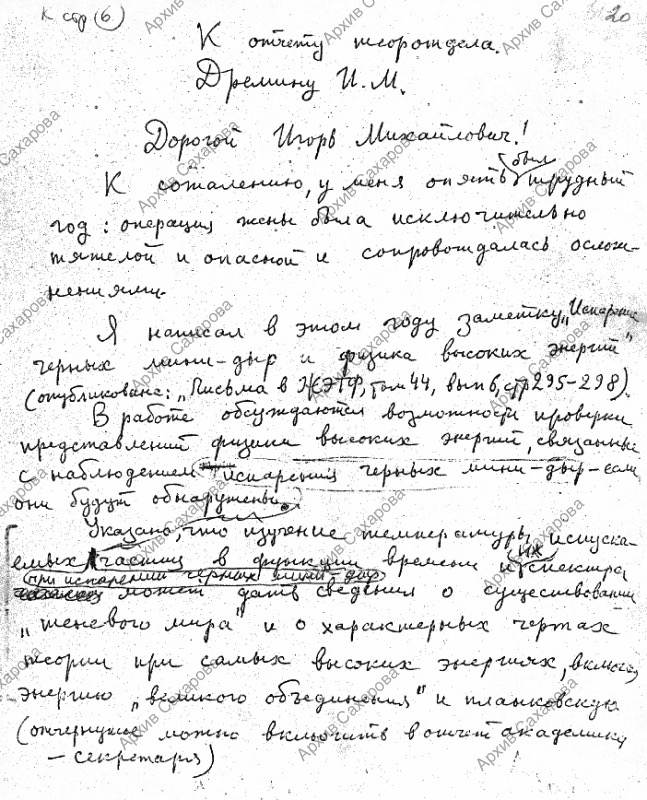 К стр (6)
20
К отчету теоротдела.
Дремину И.М.
Дорогой Игорь Михайлович!
К сожалению, у меня опять был трудный
год: операция жены была исключительно
тяжелой и опасной и сопровождалась ослож-
нениями.
Я написал в этом году заметку „Испарение
черных мини-дыр и физика высоких энергий"
(опубликована: „Письма в ЖЭТФ, том 44, вып 6, стр 295-298).
В работе обсуждаются возможности проверки
представлений физики высоких энергий, связанные
с наблюдением испарения черных мини-дыр - если
они будут обнаружены.
Указано, что изучение температуры испуска-
емых частиц в функции времени и их спектра
при испарении черных мини дыр
может дать сведения о существовании
„теневого мира" и о характерных чертах
теории при самых высоких энергиях, включая
энергию „великого объединения" и планковскую
(отчеркнутое можно включить в отчет академика
- секретаря)
Архив Сахарова